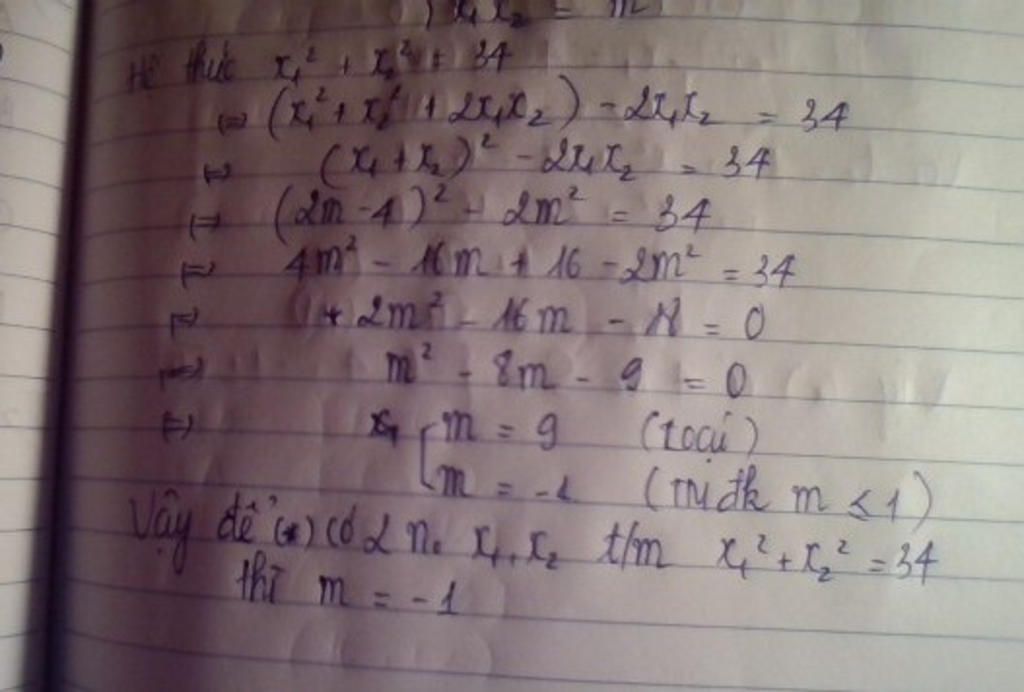 ) x₁x₂ = m
Hệ thức x₁² + x₂² = 34
⇔ (x₁² + x₂² + 2x₁x₂) - 2x₁x₂ = 34
⇔ (x₁ + x₂)² - 2x₁x₂ = 34
⇔ (2m - 4)² - 2m² = 34
⇔ 4m² - 16m + 16 - 2m² = 34
⇔ 2m² - 16m - 18 = 0
⇔ m² - 8m - 9 = 0
⇔ [ m = 9 (loại)
m = -1 (TM đk m ≤ 1)
Vậy để (*) có 2 n₀ x₁, x₂ t/m x₁² + x₂² = 34
thì m = -1